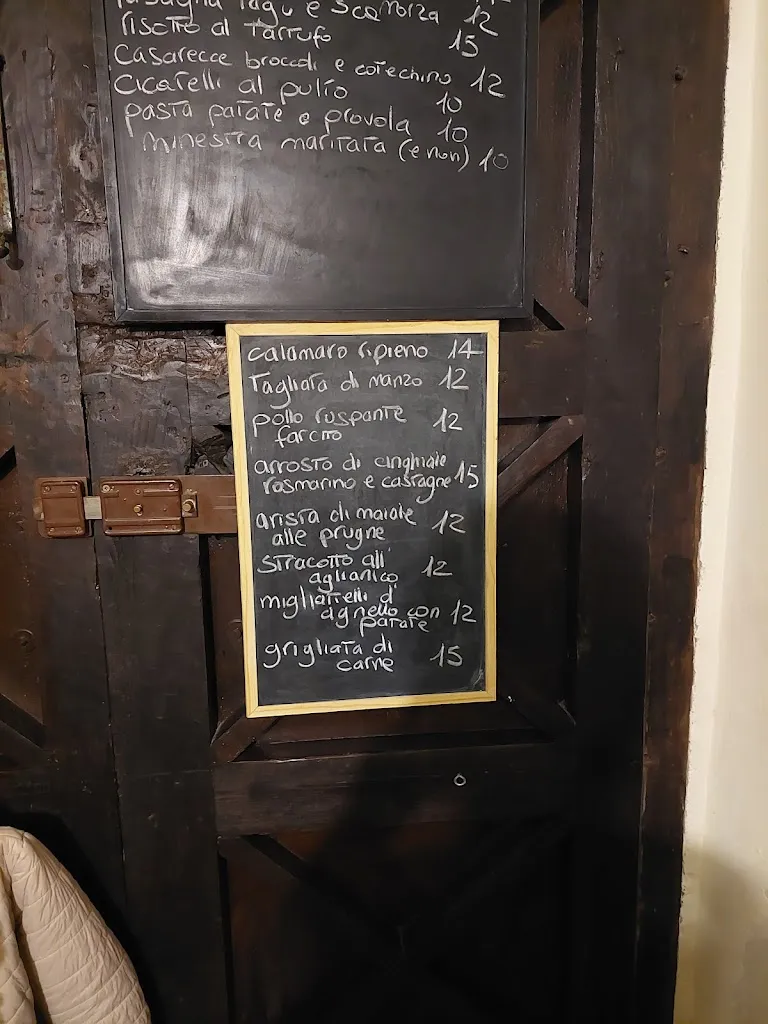 lasagna ragu e scamorza 12
risotto al tartufo 15
casarecce broccoli e cotechino 12
cicatelli al pulio 10
pasta patate e provola 10
minestra maritata (e non) 10
calamaro ripieno 14
tagliata di manzo 12
pollo ruspante 12
farcito
arrosto di cinghiale
rosmarino e castagne 15
arista di maiale 12
alle prugne
stracotto all'
aglianico 12
migliatelli d'
agnello con 12
patate
grigliata di
carne 15